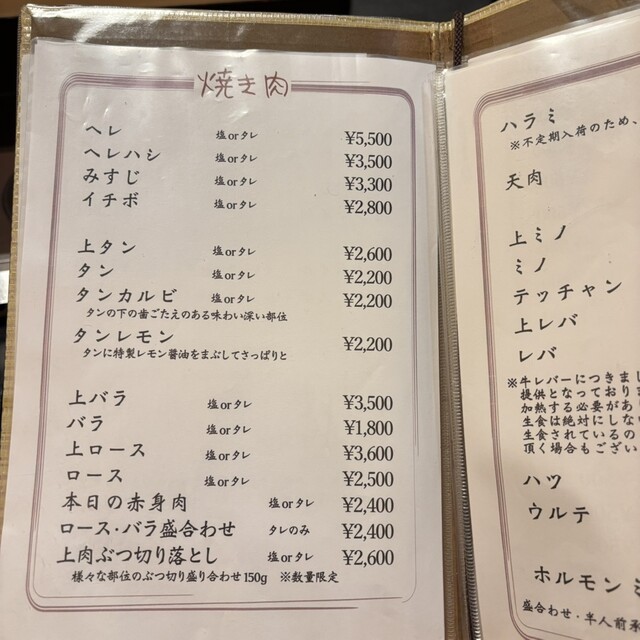 焼き肉
ヘレ 塩orタレ ¥5,500
ヘレハシ 塩orタレ ¥3,500
みすじ 塩orタレ ¥3,300
イチボ 塩orタレ ¥2,800
上タン 塩orタレ ¥2,600
タン 塩orタレ ¥2,200
タンカルビ 塩orタレ ¥2,200
タンの下の歯ごたえのある味わい深い部位
タンレモン ¥2,200
タンに特製レモン醤油をまぶしてさっぱりと
上バラ 塩orタレ ¥3,500
バラ 塩orタレ ¥1,800
上ロース 塩orタレ ¥3,600
ロース 塩orタレ ¥2,500
本日の赤身肉 塩orタレ ¥2,400
ロース・バラ盛合わせ タレのみ ¥2,400
上肉ぶつ切り落とし 塩orタレ ¥2,600
様々な部位のぶつ切り盛り合わせ150g ※数量限定
ハラミ
※不定期入荷のため、
天肉
上ミノ
ミノ
テッチャン
上レバ
レバ
※牛レバーにつきまし
提供となっており
加熱する必要があ
生食は絶対にしない
生食されているの
頂く場合もござい
ハツ
ウルテ
ホルモンミ
盛合わせ・半人前承